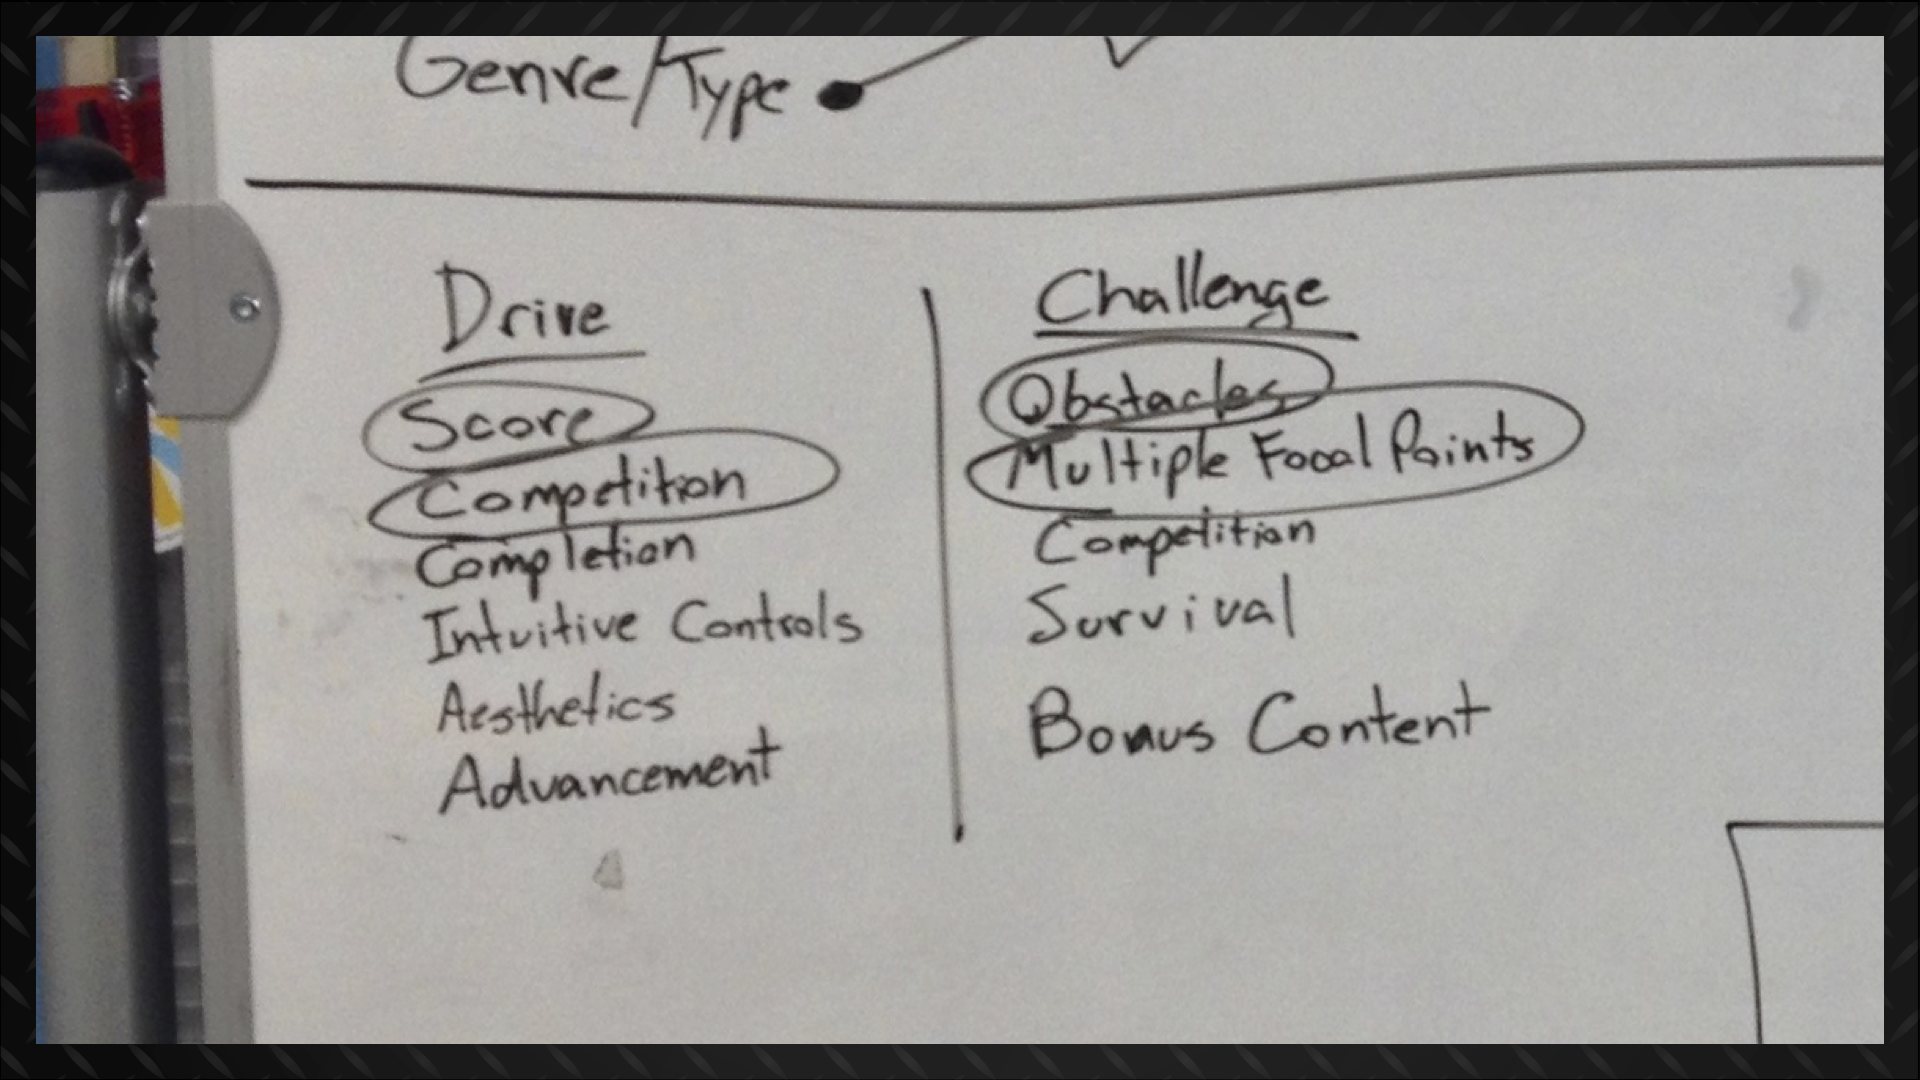 Genre/Type
Drive
Score
Competition
Completion
Intuitive Controls
Aesthetics
Advancement
Challenge
Obstacles
Multiple Focal Points
Competition
Survival
Bonus Content